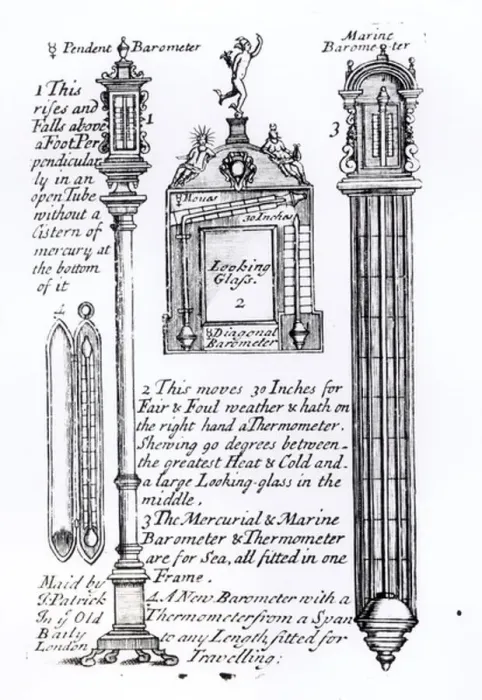 ☿ Pendent Barometer
Marine
Barometer
1 This
rises and
Falls above
a Foot Per
pendicular
ly in an
open Tube
without a
Cistern of
mercury at
the bottom
of it
1
☿ Moves
30 Inches
Looking
Glass.
2
☿ Diagonal
Barometer
3
4
2 This moves 30 Inches for
Fair & Foul weather & hath on
the right hand a Thermometer.
Shewing 90 degrees between
the greatest Heat & Cold and
a large Looking-glass in the
middle.
3 The Mercurial & Marine
Barometer & Thermometer
are for Sea, all fitted in one
Frame.
4. A New Barometer with a
Thermometer from a Span
to any Length fitted for
Travelling:
Maid by
J. Patrick
In yͤ Old
Baily
London